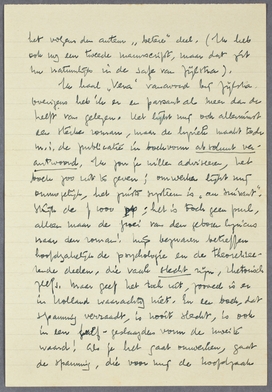 het volgens den auteur „betere" deel. (Ik heb
ook nog een tweede manuscript, maar dat zit
nu natuurlijk in de safe van Zijlstra).
Ik haal „Vera" vanavond bij Zijlstra.
Overigens heb ik er en passant al meer dan de
helft van gelezen. Het lijkt mij ook allerminst
een sterke roman, maar de lyriek maakt toch
m.i. de publicatie in boekvorm absoluut ver-
antwoord. Ik zou je willen adviseeren, het
boek zoo uit te geven; omwerken lijkt mij
onmogelijk, het juiste systeem is „an
de is toch geen
alleen maar de groei van den geboren lyricus
naar den roman. Mijn bezwaren betreffen
hoofdzakelijk de psychologie en de theoretisee-
rende deelen, die vaak slecht zijn, rhetorisch
zelfs. Maar geef het toch uit, zooveel is er
in Holland waarachtig niet. En een boek, dat
spanning verraadt, is nooit slecht, is ook
in een half-geslaagden vorm de moeite
waard! Als je het gaat omwerken, gaat
de spanning, die voor mij de hoofdzaak